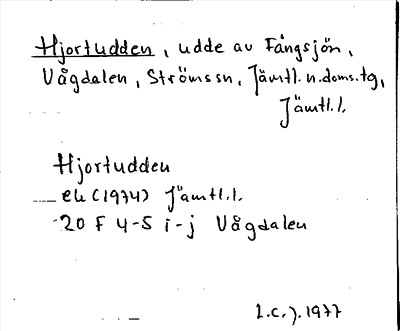 Hjortudden, udde av Fångsjön,
Vågdalen, Ströms sn, Jämtl. n. doms. tg,
Jämtl. l.
Hjortudden
ek (1974) Jämtl. l.
20 F 4-5 i-j Vågdalen
L.C.J. 1977